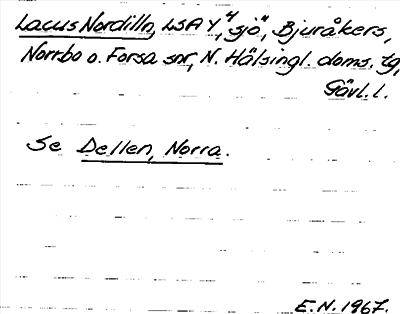 Lacus Nordilln, LSA Y 4, "sjö", Bjuråkers,
Norrbo o. Forsa snr, N. Hälsingl. doms. tg,
Gävl. l.
Se Dellen, Norra.
E.N. 1967.